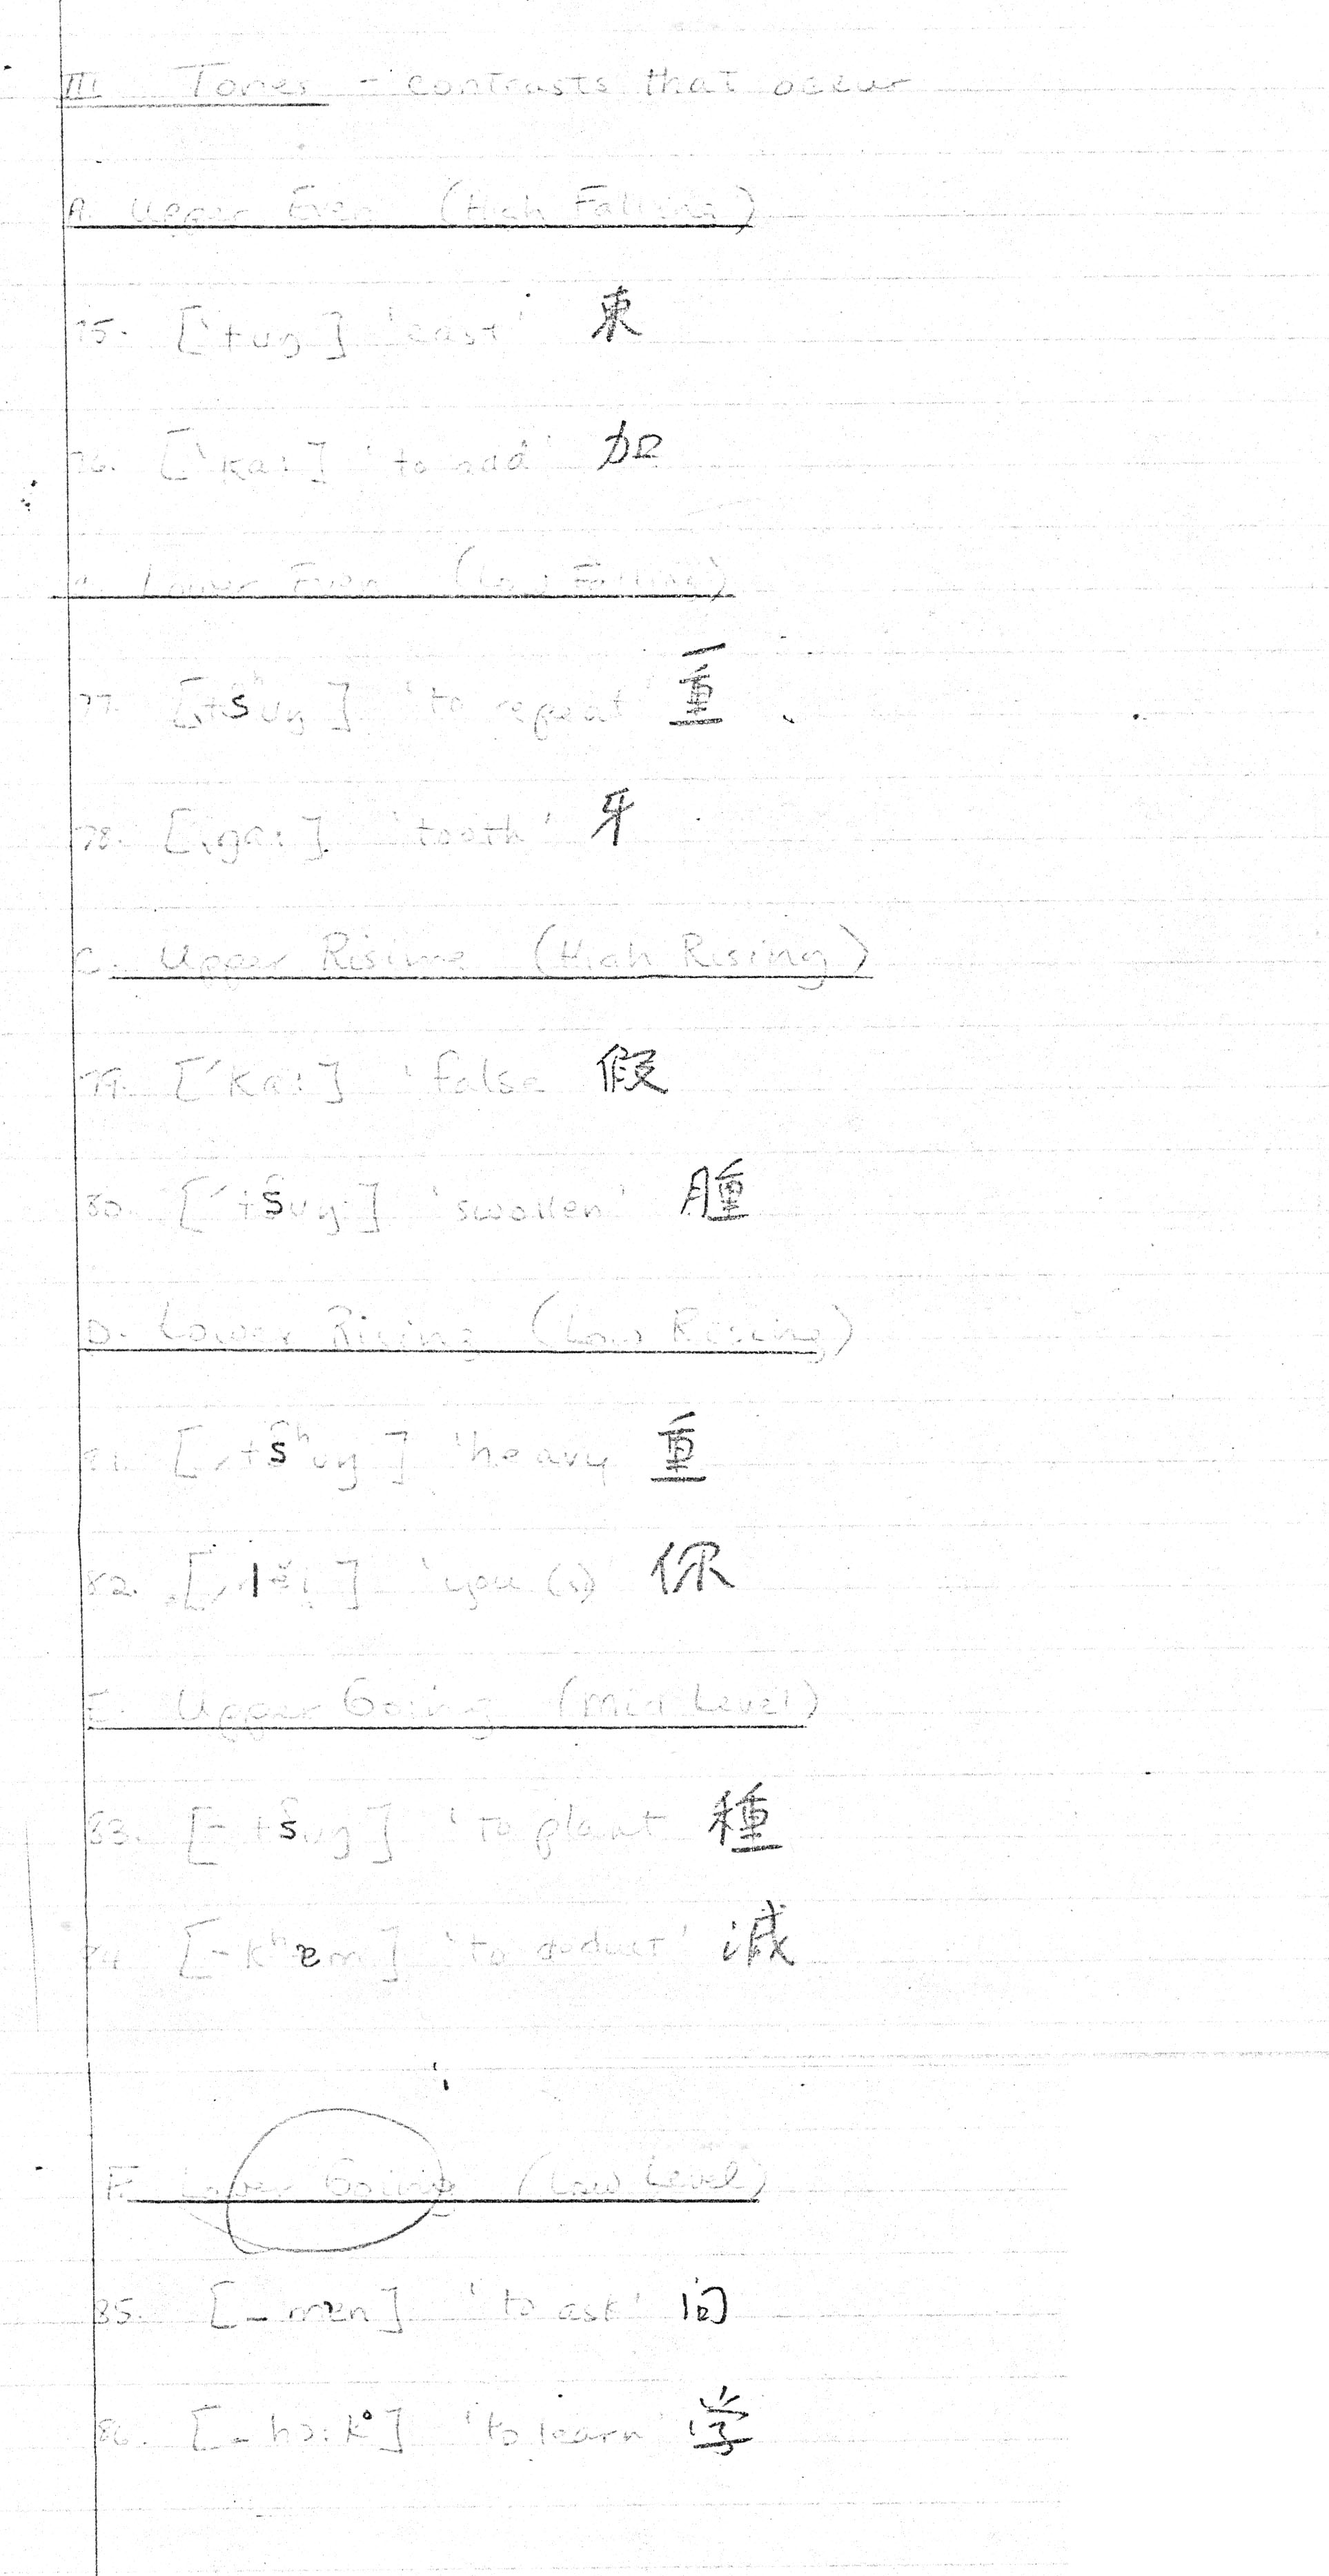 III Tones - contrasts that occur
A. Upper Even (High Falling)
75. [ˋtuŋ] 'east' 東
76. [ˋka:] 'to add' 加
B. Lower Even (Low Falling)
77. [ˎtsʰuŋ] 'to repeat' 重
78. [ˎŋa:] 'tooth' 牙
C. Upper Rising (High Rising)
79. [ˊka:] 'false 假
80. [ˊtsuŋ] 'swollen' 腫
D. Lower Rising (Low Rising)
81. [ˏtsʰuŋ] 'heavy 重
82. [ˏlei] 'you (s) 你
E. Upper Going (Mid Level)
83. [-tsuŋ] 'to plant 種
84. [-kʰɐm] 'to deduct' 減
F. Lower Going (Low Level)
85. [_mɐn] 'to ask' 问
86. [_hɔ:k°] 'to learn 学